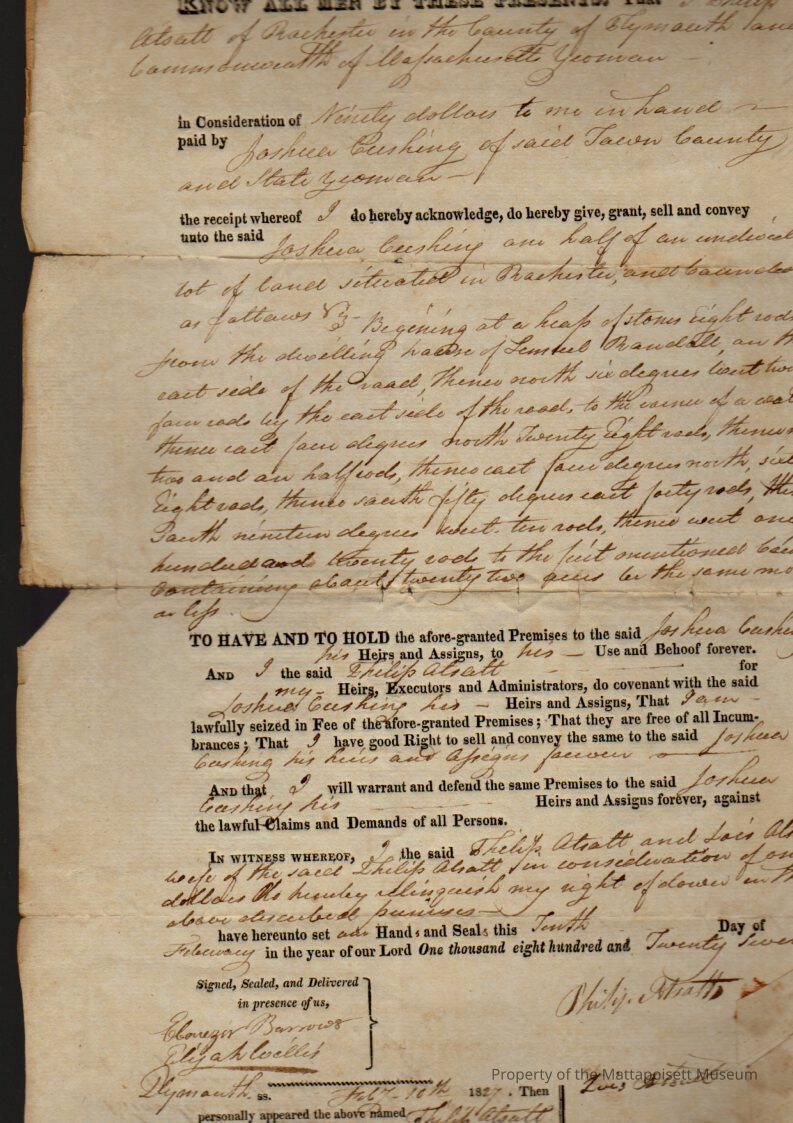 KNOW ALL MEN BY THESE PRESENTS, That I Philip
Atsatt of Rochester in the County of Plymouth and
Commonwealth of Massachusetts Yeoman
in Consideration of Ninety dollars to me in hand
paid by Joshua Cushing of said Town County
and State Yeoman
the receipt whereof I do hereby acknowledge, do hereby give, grant, sell and convey
unto the said Joshua Cushing one half of an undivid
lot of land situated in Rochester, and bounded
as follows Viz Begining at a heap of stones Eight rods
from the dwelling house of Lemuel Randall, on th
east side of the road, thence north six degrees west twe
four rods by the east side of the road, to the corner of a
thence east four degrees north Twenty Eight rods, thence
two and an half rods, thence east four degrees north, six
Eight rods, thence south fifty degrees east forty rods, the
South nineteen degrees west ten rods, thence west one
hundred and twenty rods to the first mentioned
Containing about twenty two acres be the same mo
or less.
TO HAVE AND TO HOLD the afore-granted Premises to the said Joshua Cushi
his Heirs and Assigns, to his Use and Behoof forever.
AND I the said Philip Atsatt for
my Heirs, Executors and Administrators, do covenant with the said
Joshua Cushing his Heirs and Assigns, That I am
lawfully seized in Fee of the afore-granted Premises; That they are free of all Incum-
brances; That I have good Right to sell and convey the same to the said Joshua
Cushing his heirs and Assigns forever
AND that I will warrant and defend the same Premises to the said Joshua
Cushing his Heirs and Assigns forever, against
the lawful Claims and Demands of all Persons.
IN WITNESS WHEREOF, I the said Philip Atsatt and Lois Ats
wife of the said Philip Atsatt, in consideration of on
dollar do hereby relinquish my right of dower in th
above described premises
have hereunto set our Hands and Seals this Tenth Day of
February in the year of our Lord One thousand eight hundred and Twenty Seven
Signed, Sealed, and Delivered
in presence of us,
Philip Atsatt
Ebenezer Barrows
Elijah Willis
Property of the Mattapoisett Museum
Plymouth ss. Feby 10th 1827. Then
Lois Atsatt
personally appeared the above named Philip Atsatt